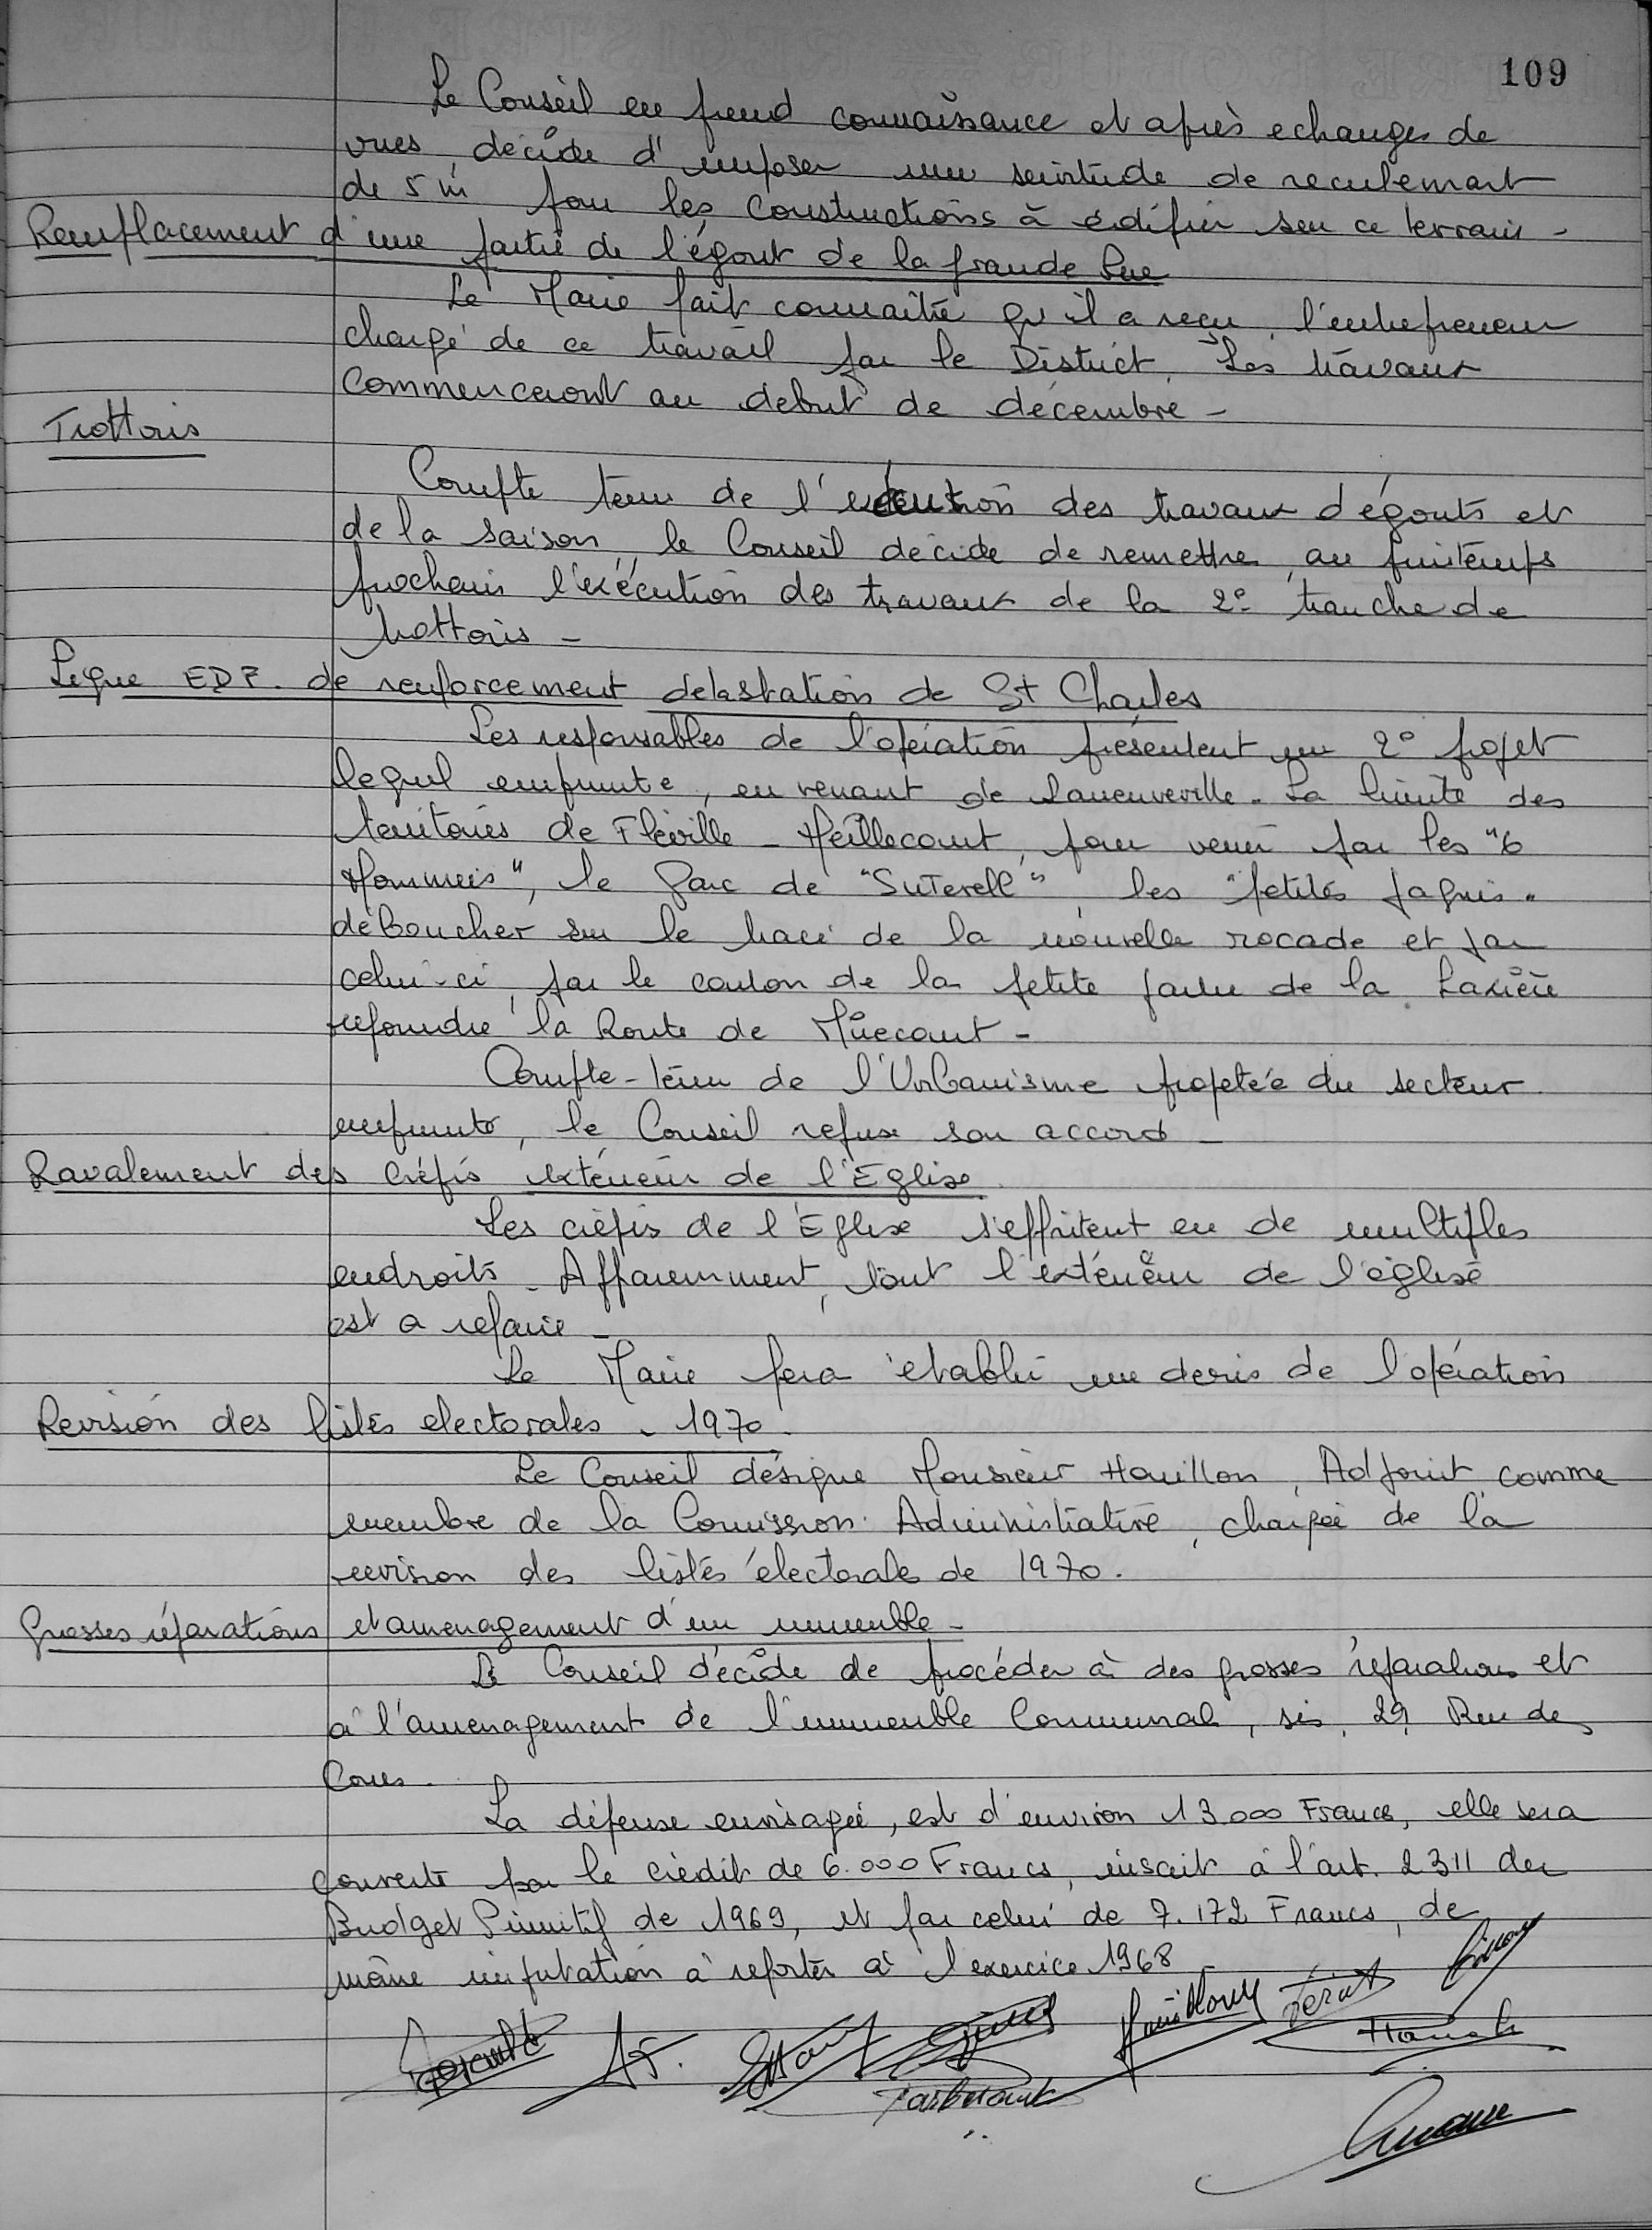 109
Le Conseil en prend connaissance et après echanges de
vues, décide d'imposer une servitude de reculement
de 5 m pour les constructions à édifier sur ce terrain -
Remplacement d'une partie de l'égout de la Grande Rue
Le Maire fait connaître qu'il a reçu l'entrepreneur
chargé de ce travail par le District. Les travaux
commenceront au début de décembre -
Trottoirs
Compte tenu de l'exécution des travaux d'égouts et
de la saison, le Conseil décide de remettre au printemps
prochain l'exécution des travaux de la 2e tranche de
trottoirs -
Ligne EDF. de renforcement de la station de St Charles
Les responsables de l'opération présentent un 2° projet
lequel emprunte, en venant de Laneuveville. La limite des
territoires de Fléville - Heillecourt, pour venir par les "6
", le Parc de "Suterell", les "petits
déboucher sur le tracé de la nouvelle rocade et par
celui-ci, par le de la petite de la
rejoindre la Route de Mirecourt -
Compte-tenu de l'Urbanisme projetée du secteur
emprunté, le Conseil refuse son accord -
Ravalement des crépis extérieur de l'Eglise
Les crépis de l'Eglise s'effritent en de multiples
endroits - Apparemment, tout l'extérieur de l'église
est a refaire -
Le Maire fera établir un devis de l'opération
Revision des listes electorales - 1970.
Le Conseil désigne Monsieur Houillon, Adjoint comme
membre de la Comission Administrative, chargée de la
revision des listes électorales de 1970.
Grosses réparations et amenagement d'un immeuble -
Le Conseil décide de procéder à des grosses réparations et
à l'amenagement de l'immeuble Communal, sis, 29, Rue de
Cours.
La dépense envisagée, est d'environ 13.000 Francs, elle sera
couverte par le crédit de 6.000 Francs, inscrit à l'art. 2311 du
Budget Primitif de 1969, et par celui de 7.172 Francs, de
même imputation à reporter à l'exercice 1968